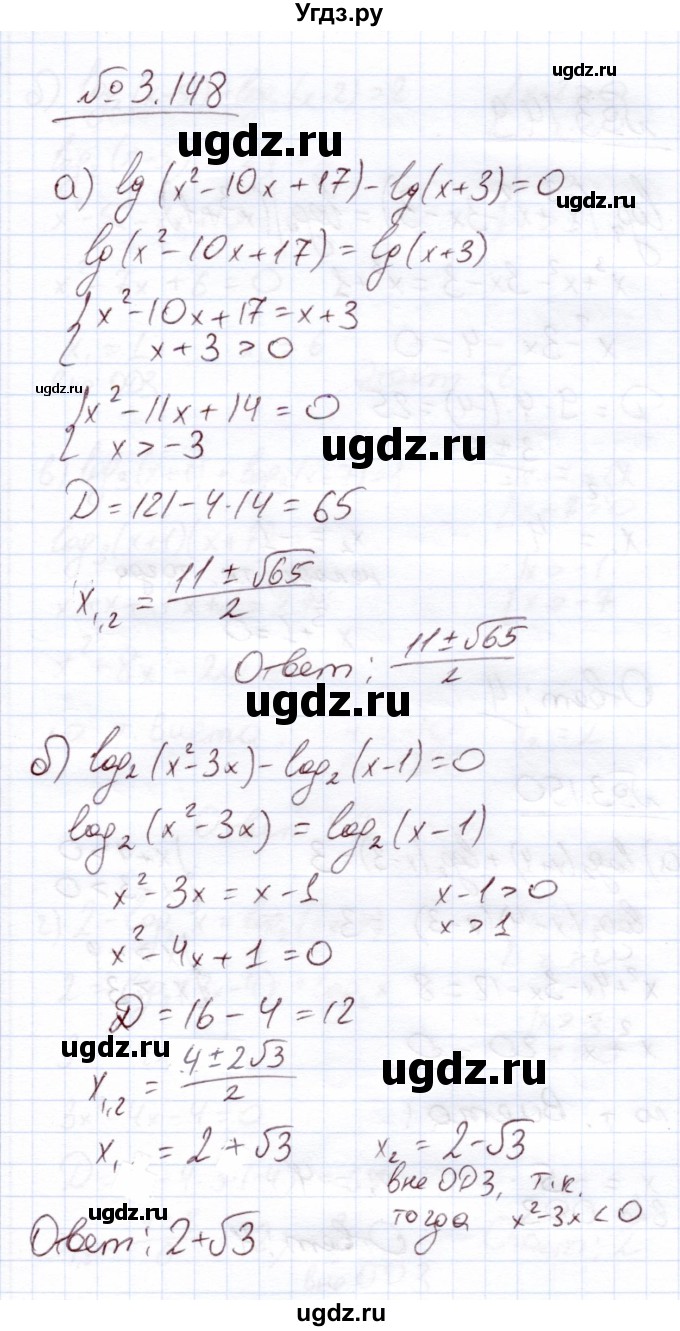 Угдз.ру
ugdz.ru
№3.148
ugdz.ru
а) lg(x²-10x+17)-lg(x+3)=0
ugdz.ru
lg(x²-10x+17)=lg(x+3)
{ x²-10x+17=x+3
x+3>0
ugdz.ru
{ x²-11x+14=0
x>-3
ugdz.ru
D=121-4·14=65
x₁,₂ = (11±√65)/2
ugdz.ru
Ответ: (11±√65)/2
ugdz.ru
б) log₂(x²-3x)-log₂(x-1)=0
log₂(x²-3x)=log₂(x-1)
x²-3x=x-1 x-1>0
x>1
x²-4x+1=0
D=16-4=12
ugdz.ru
x₁,₂ = (4±2√3)/2
ugdz.ru
x₁ = 2+√3 x₂ = 2-√3
вне ОДЗ, т.к.
тогда x²-3x<0
ugdz.ru
Ответ: 2+√3
ugdz.ru
ugdz.ru